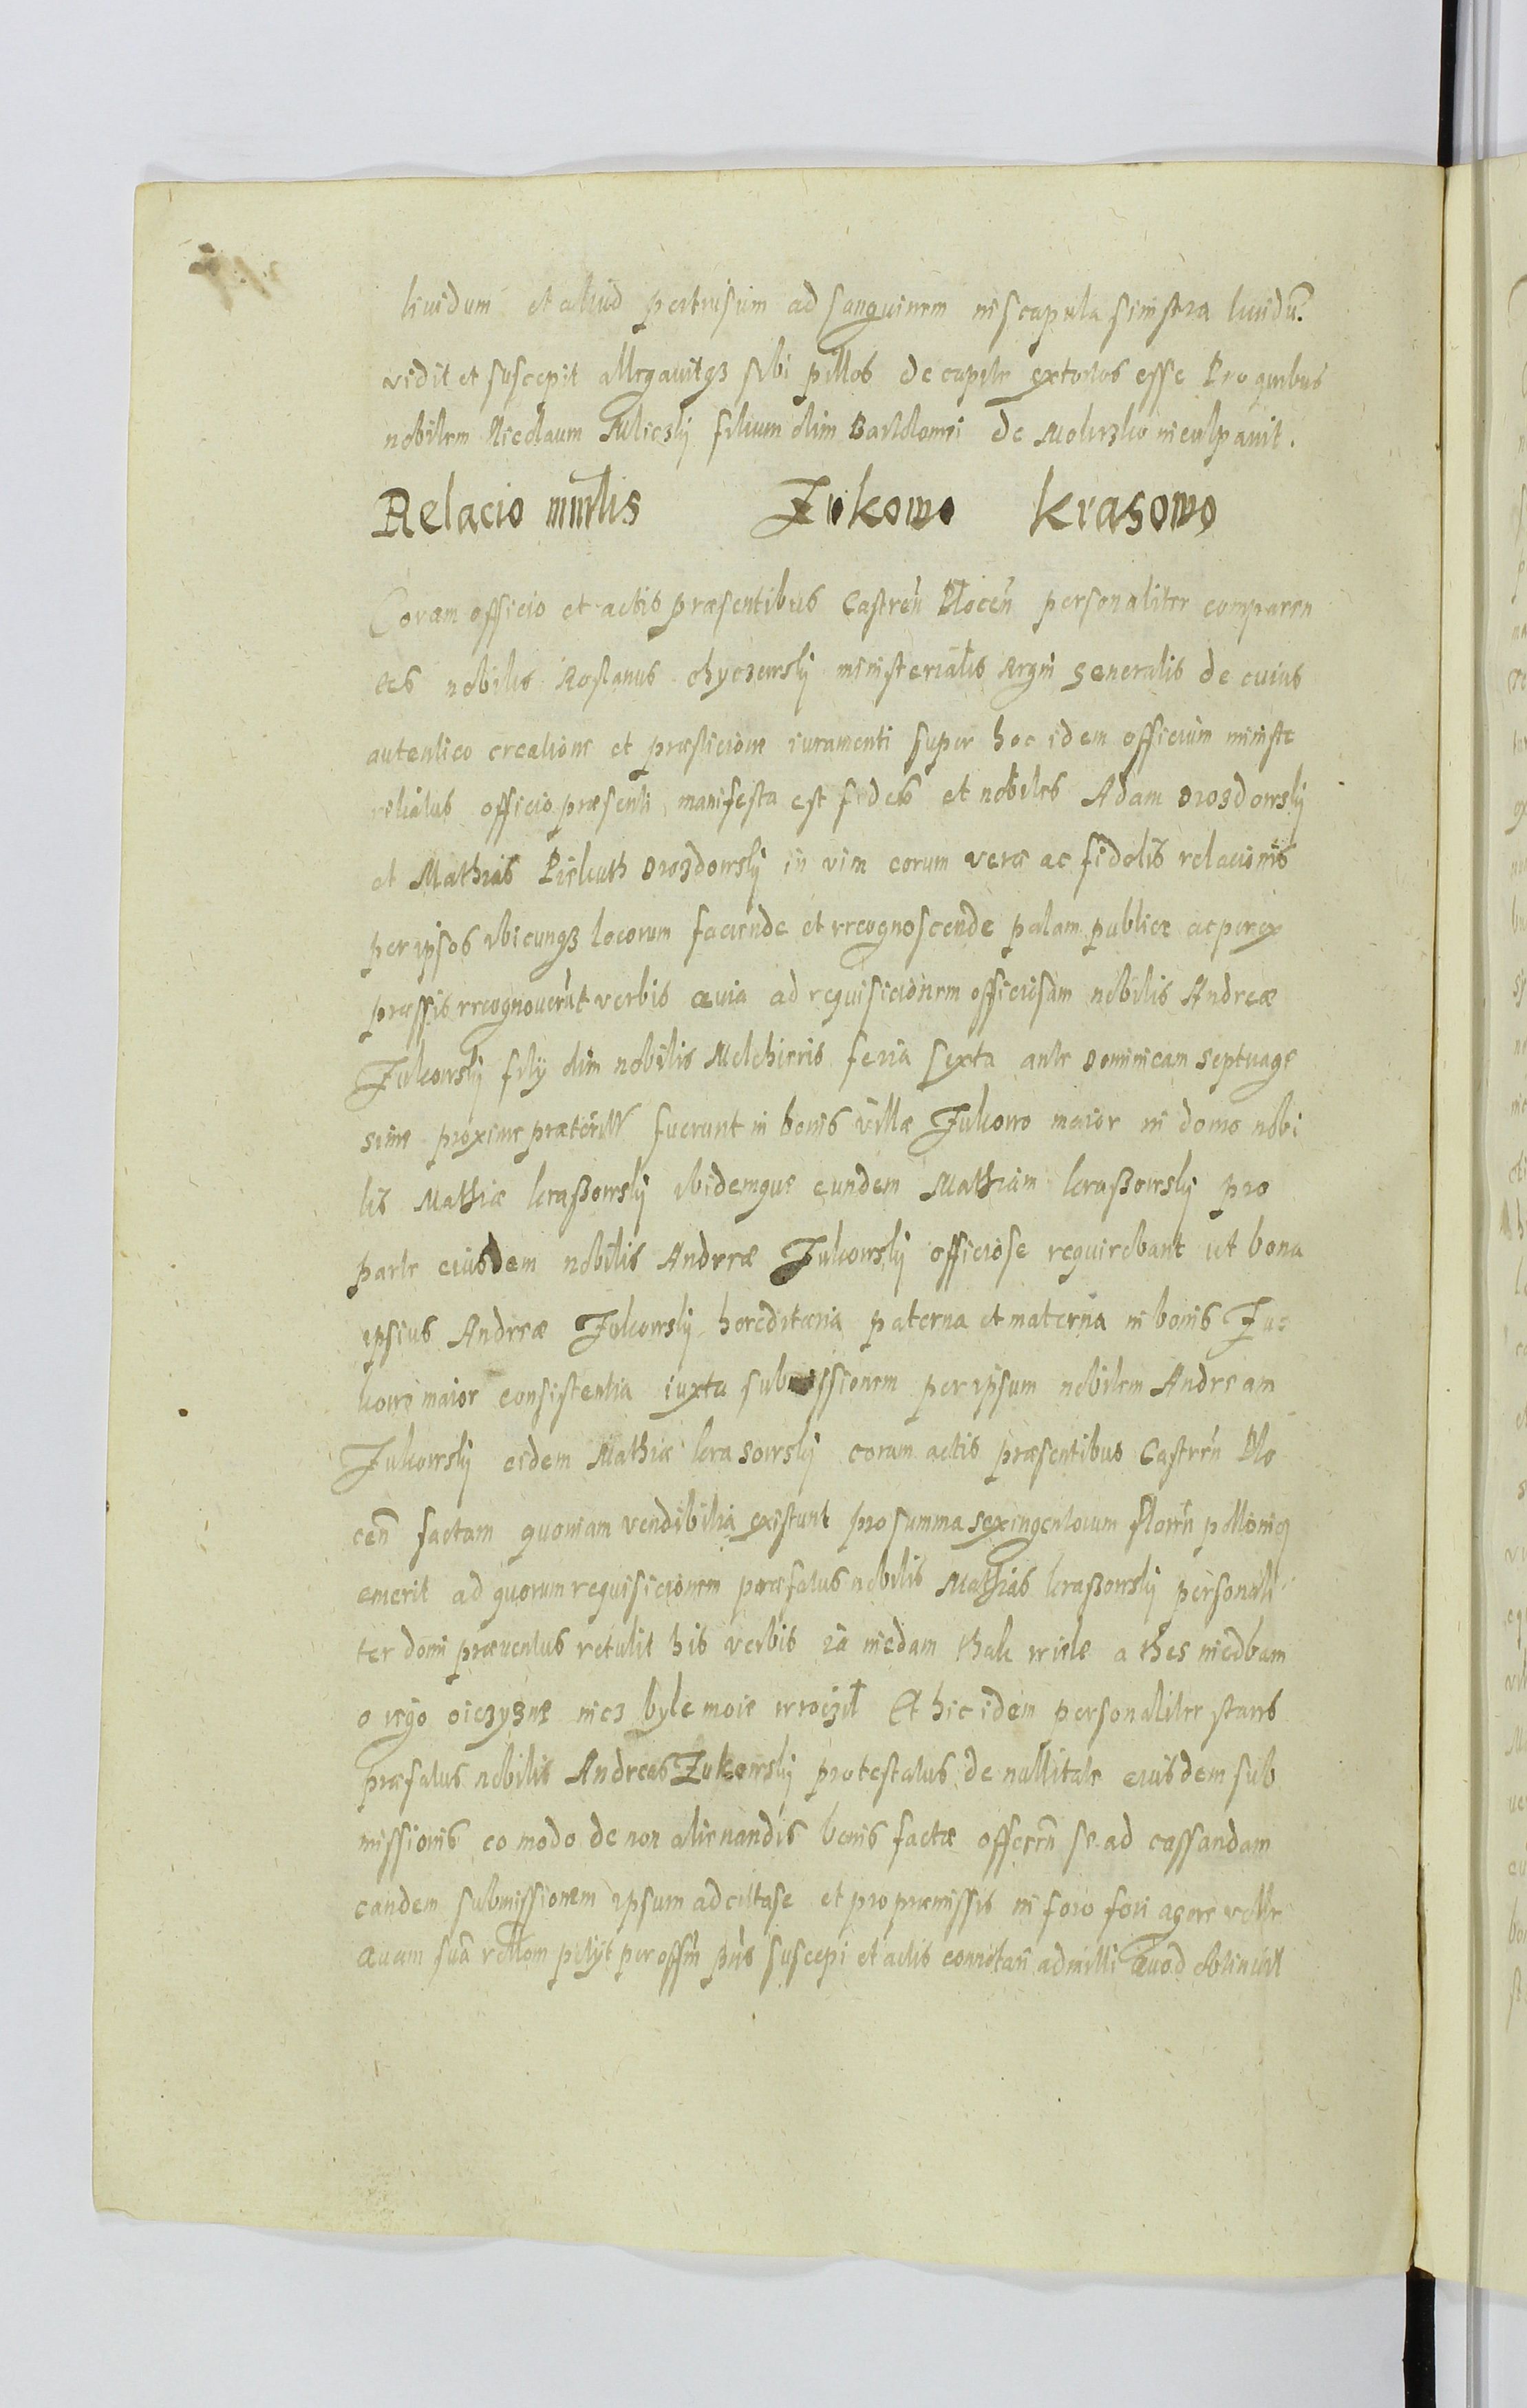 liuidum et aliud pertusum ad sanguinem in scapula sinistra liuidū.
vidit et suscepit allegauitqʒ sibi pillos de capite extortos esse Pro quibus
nobilem Nicolaum filium olim Bartolomei de inculpauit.
Relacio mīrlis Zukowo Krasowo
Coram officio et actis præsentibus Castreñ Ploceñ personaliter comparen
tes nobiles ministerialis Regni generalis de cuius
autentico creatione et præsticione iuramenti super hoc idem officium ministe
rialatus officio præsenti manifesta est fides et nobiles Adam Drozdowskj
et Mathias Drozdowskj in vim eorum veræ ac fidelis relacionis
per ipsos vbicunqʒ locorum faciende et recognoscende palam publice ac per ex
pressis recognouerūt verbis quia ad requisicionem officiosam nobilis Andreæ
Zukowskj filÿ olim nobilis Melchioris feria sexta ante Dominicam Septuage
sime proxime præterit fuerunt in bonis villæ Zukowo maior in domo nobi
lis Mathiæ kraßowskj ibidemque eundem Mathiam kraßowskj pro
parte eiusdem nobilis Andreæ Zukowskj officiose requirebant ut bona
ipsius Andreæ Zukowskj hereditaria paterna et materna in bonis Zu
kowo maior consistentia iuxta submissionem per ipsum nobilem Andream
Zukowskj eidem Mathiæ krasowskj coram actis præsentibus Castreñ Plo
ceñ factam quoniam vendibilia existunt pro summa sexingentorum floreñ
emerit ad quorum requisicionem præfatus nobilis Mathias kraßowskj personali
ter domi præuentus retulit his verbis ia niedam thak wiele a thes niedbam
o iego oiczyzne nicz byle moie wroczil Et hic idem personaliter stans
præfatus nobilis Andreas Zukowskj protestatus de nullitate eiusdem sub
missionis eo modo de non alienandis bonis factæ offereñ se ad cassandam
eandem submissionem ipsum adcitase et pro præmissis in foro fori agere velle
Quam suā petÿt per offm̄ pn̄s suscepi et actis connotari admitti Quod obtinuit